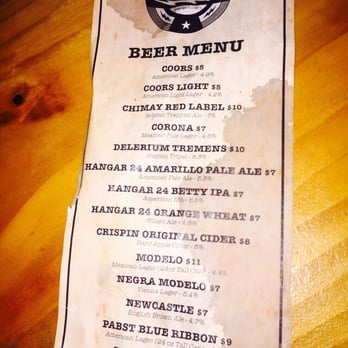 BEER MENU
COORS $5
American Lager - 4.9%
COORS LIGHT $5
American Light Lager - 4.2%
CHIMAY RED LABEL $10
Belgian Trappist Ale - 7%
CORONA $7
Mexican Pale Lager - 4.6%
DELERIUM TREMENS $10
Belgian Tripel - 8.5%
HANGAR 24 AMARILLO PALE ALE $7
American Pale Ale - 5.5%
HANGAR 24 BETTY IPA $7
American IPA - 6.5%
HANGAR 24 ORANGE WHEAT $7
Wheat Ale - 4.6%
CRISPIN ORIGINAL CIDER $6
Hard Apple Cider - 5%
MODELO $11
Mexican Lager (24oz Tall Can) - 4.4%
NEGRA MODELO $7
Vienna Lager - 5.4%
NEWCASTLE $7
English Brown Ale - 4.7%
PABST BLUE RIBBON $9
American Lager (24 oz Tall Can)